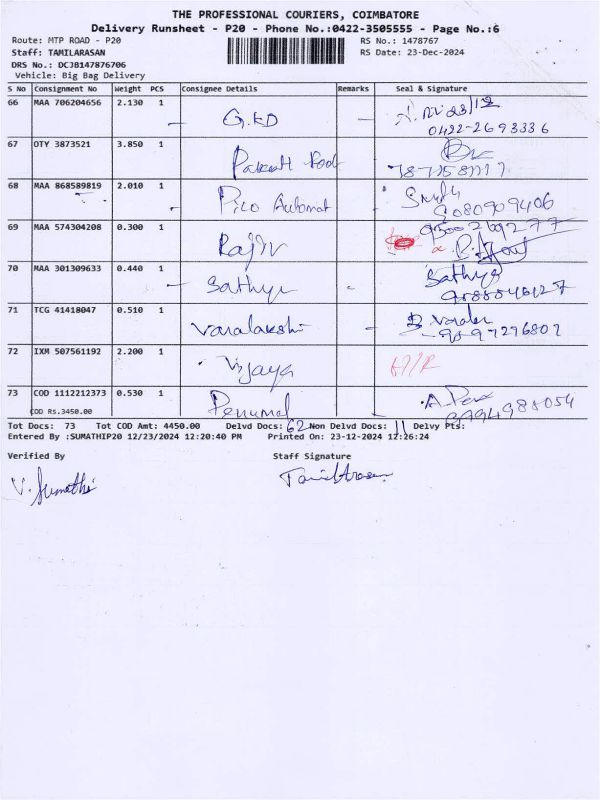 THE PROFESSIONAL COURIERS, COIMBATORE
Delivery Runsheet - P20 - Phone No.:0422-3505555 - Page No.:6
Route: MTP ROAD - P20 RS No.: 1478767
Staff: TAMILARASAN RS Date: 23-Dec-2024
DRS No.: DCJB147876706
Vehicle: Big Bag Delivery
S No Consignment No Weight PCS Consignee Details Remarks Seal & Signature
66 MAA 706204656 2.130 1 G.KD
0422-2693336
67 OTY 3873521 3.850 1
68 MAA 868589819 2.010 1 Pico Automat
9080909406
69 MAA 574304208 0.300 1 Rajiv
70 MAA 301309633 0.440 1 Sathya Sathya
71 TCG 41418047 0.510 1 Varalakshi
72 IXM 507561192 2.200 1 Vijaya
73 COD 1112212373 0.530 1 Perumal
COD Rs.3450.00
Tot Docs: 73 Tot COD Amt: 4450.00 Delvd Docs: 62 Non Delvd Docs: 11 Delvy Pts:
Entered By :SUMATHIP20 12/23/2024 12:20:40 PM Printed On: 23-12-2024 12:26:24
Verified By Staff Signature
V. Sumathi Tamilarasan